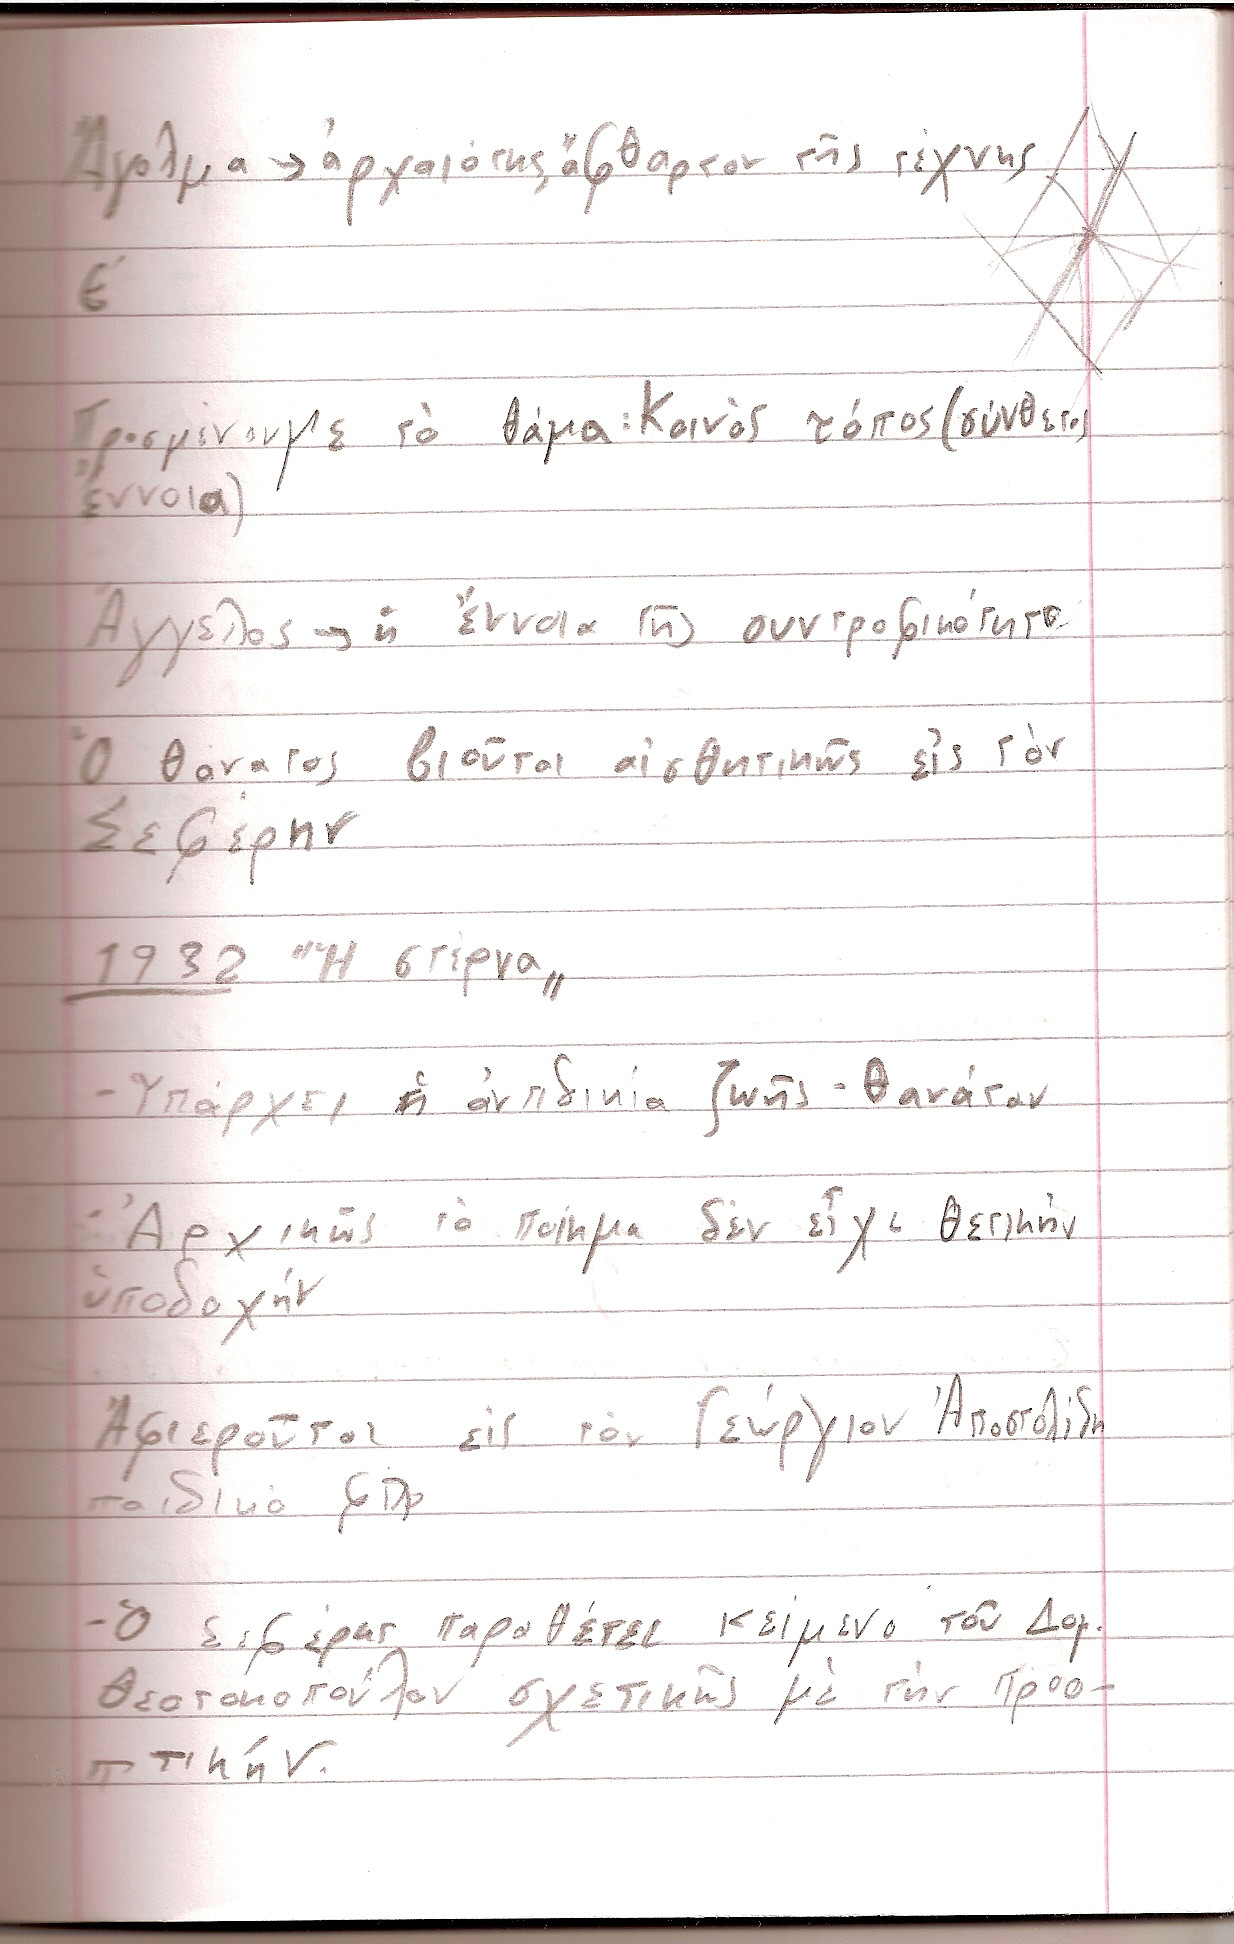 Ἄγαλμα → ἀρχαιότης, ἄφθαρτον τῆς τέχνης
Ε΄
Προσμένουμε τὸ θάμα: Κοινὸς τόπος (σύνθετος
ἔννοια)
Ἄγγελος → ἡ ἔννοια τῆς συντροφικότητα
Ὁ θάνατος βιοῦται αἰσθητικῶς εἰς τὸν
Σεφέρην
1932 "Ἡ στέρνα„
- Ὑπάρχει ἡ ἀντιδικία ζωῆς - θανάτου
- Ἀρχικῶς τὸ ποίημα δὲν εἶχε θετικήν
ὑποδοχήν
Ἀφιεροῦται εἰς τὸν Γεώργιον Ἀποστολίδη
παιδικό
- Ὁ Σεφέρης παραθέτει κείμενο τοῦ Δομ.
Θεοτοκοπούλου σχετικῶς μὲ τὴν προο-
πτικήν.